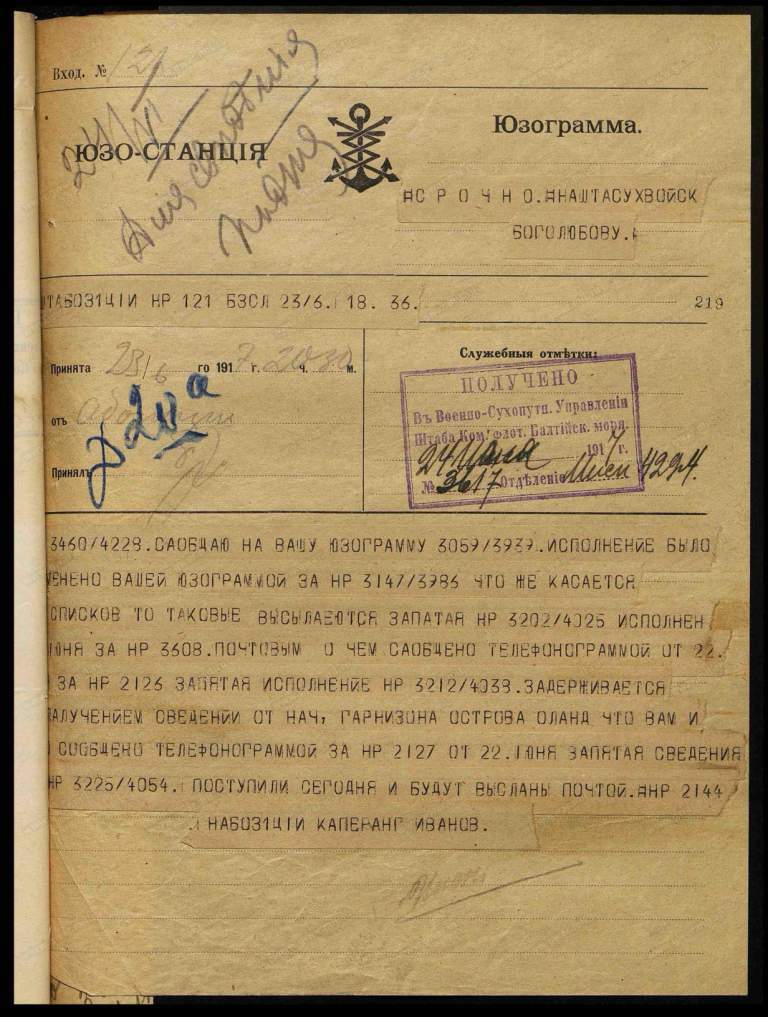 Вход. № 121
ЮЗО-СТАНЦІЯ
Юзограмма.
СРОЧНО. НАШТАСУХВОЙСК
БОГОЛЮБОВУ.
ТАБОЗ1ЦІИ НР 121 БЗСЛ 23/6. 18. 36.
219
Принята 23/6 го 1917 г. 20 ч. 30 м.
отъ
Принялъ
Служебныя отмѣтки:
ПОЛУЧЕНО
Въ Военно-Сухопутн. Управленіи
Штаба Ком. флот. Балтійск. моря.
24 1917 г.
№ 3617 Отдѣленіе 4294.
3460/4228. САОБЩАЮ НА ВАШУ ЮЗОГРАММУ 3059/3939. ИСПОЛНЕНИЕ БЫЛО
МЕНЕНО ВАШЕЙ ЮЗОГРАММОЙ ЗА НР 3147/3986 ЧТО ЖЕ КАСАЕТСЯ
СПИСКОВ ТО ТАКОВЫЕ ВЫСЫЛАЮТСЯ ЗАПАТАЯ НР 3202/4025 ИСПОЛНЕН
ЮНЯ ЗА НР 3608. ПОЧТОВЫМ О ЧЕМ САОБЩЕНО ТЕЛЕФОНОГРАММОЙ ОТ 22.
ЗА НР 2126 ЗАПЯТАЯ ИСПОЛНЕНИЕ НР 3212/4038. ЗАДЕРЖИВАЕТСЯ
АЛУЧЕНИЕМ СВЕДЕНИИ ОТ НАЧ, ГАРНИЗОНА ОСТРОВА ОЛАНД ЧТО ВАМ И
СООБЩЕНО ТЕЛЕФОНОГРАММОЙ ЗА НР 2127 ОТ 22. ІЮНЯ ЗАПЯТАЯ СВЕДЕНИЯ
НР 3225/4054. ПОСТУПИЛИ СЕГОДНЯ И БУДУТ ВЫСЛАНЫ ПОЧТОЙ. НР 2144
НАБОЗ1ЦІИ КАПЕРАНГ ИВАНОВ.